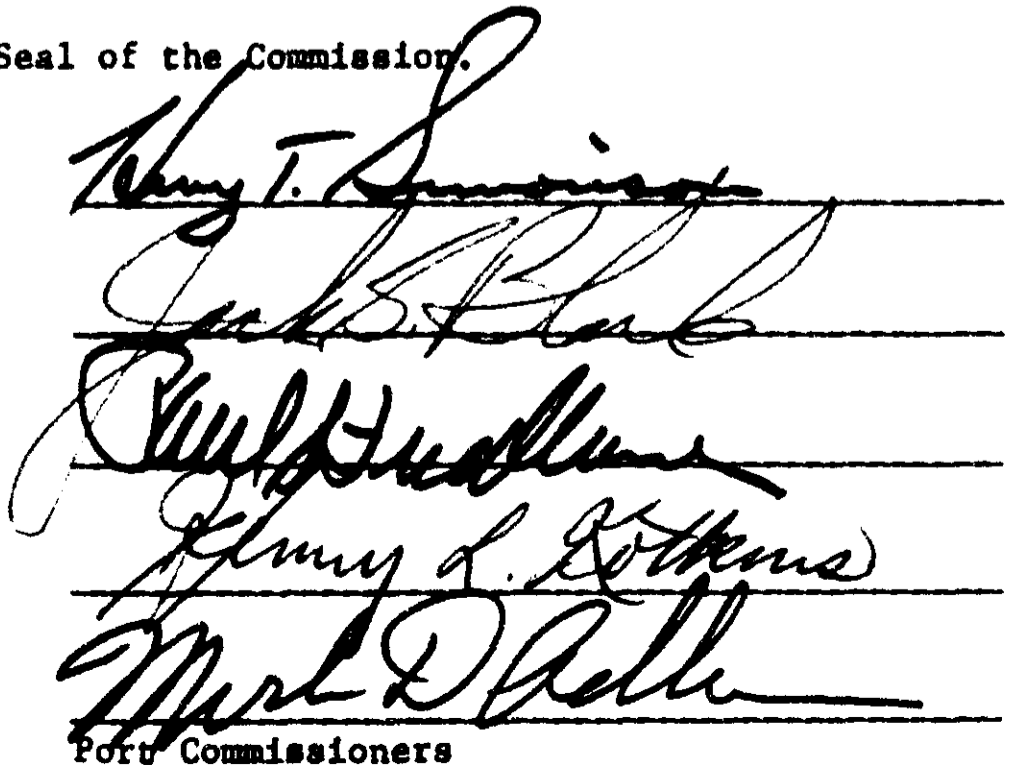 Seal of the Commission.
Henry T. Simonson
Jack S. Block
Paul
Henry L. Kotkins
Merle D. Adlum
Port Commissioners